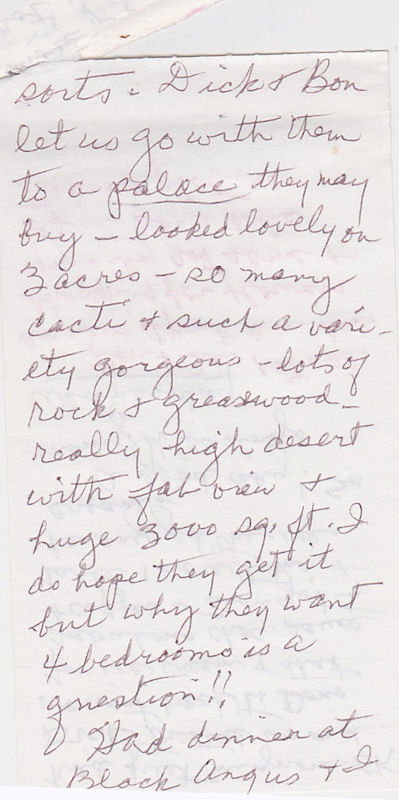 sorts. Dick & Bon
let us go with them
to a palace they may
buy - looked lovely on
3 acres - so many
cacti & such a vari-
ety gorgeous - lots of
rock & greasewood -
really high desert
with fab view &
huge 3000 sq. ft. I
do hope they get it
but why they want
4 bedrooms is a
question!!
Had dinner at
Black Angus & I